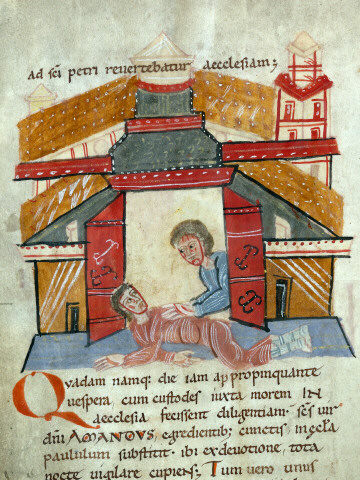 ad sc̄i petri revertebatur aecclesiam;
Quadam namq: die iam appropinquante
vespera, cum custodes iuxta morem IN
aecclesia fecissent diligentiam. sc̄s vir
dn̄i AMANDVS, egredientib; cunctis, in ęcl̄a
paululum substitit. ibi ex devotione, tota
nocte vigilare cupiens; Tum vero unus